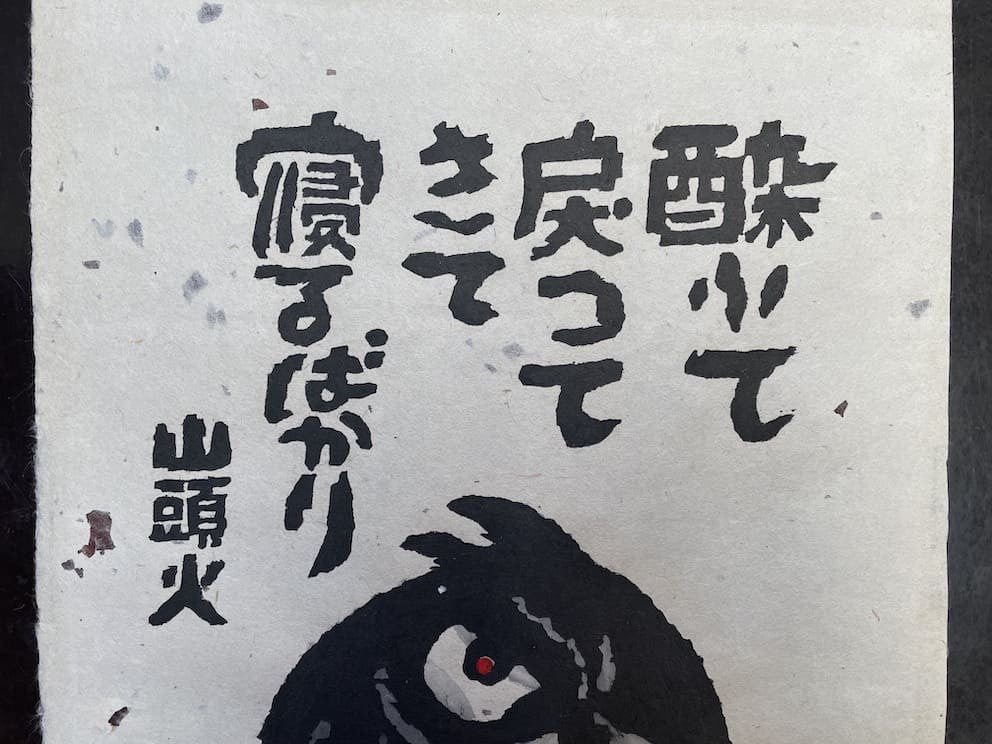 酔いて
戻つて
きて
寝るばかり
山頭火